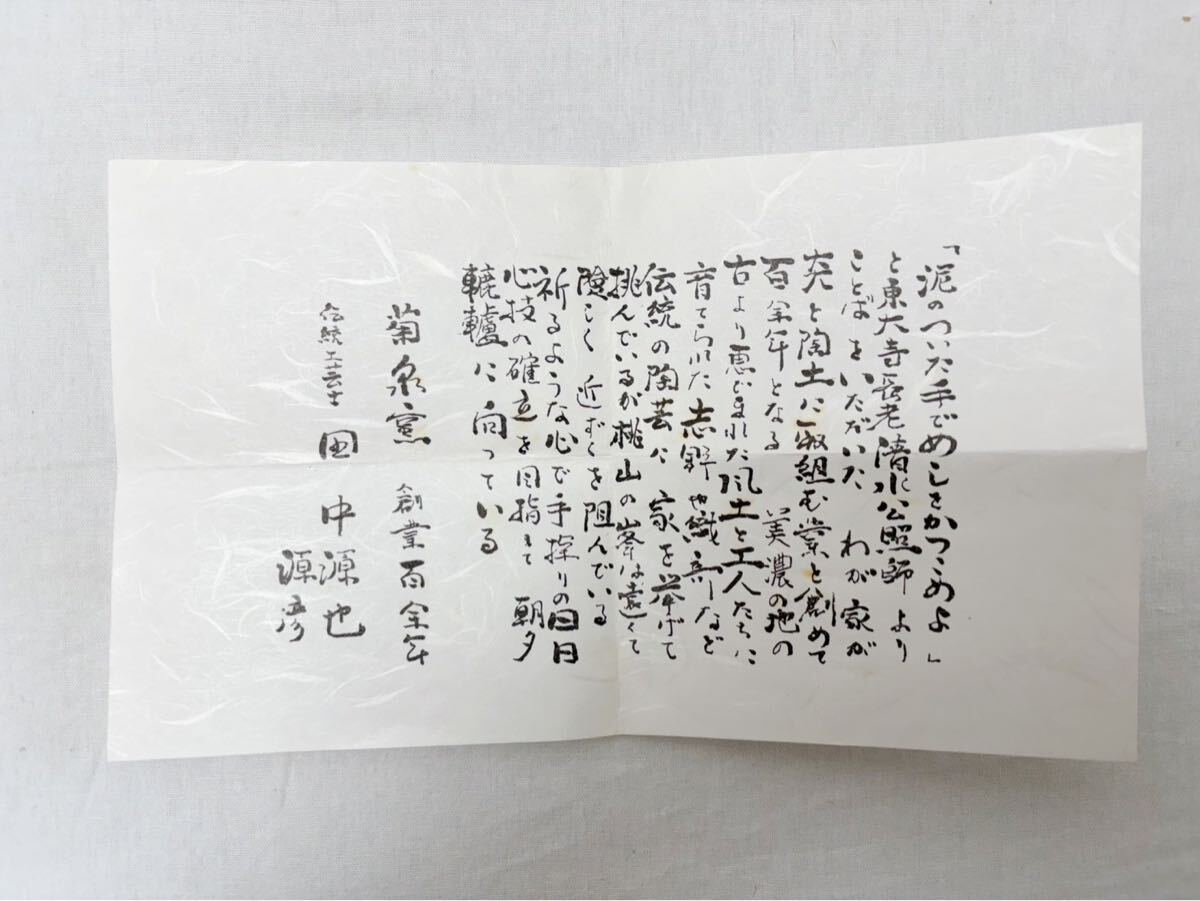 「泥のついた手でめしをかっこめよ」
と東大寺長老清水公照師より
ことばをいただいた わが家が
炎と陶土に取組む業を創めて
百余年となる 美濃の地の
古より恵まれた風土と工人たちに
育てられた志野や織部など
伝統の陶芸に 家を挙げて
挑んでいるが桃山の峯は遠くて
険しく 近ずくを阻んでいる
祈るような心で手探りの日日
心技の確立を目指して 朝夕
轆轤に向っている
菊泉窯 創業百余年
伝統工芸士 田中源也
源彦